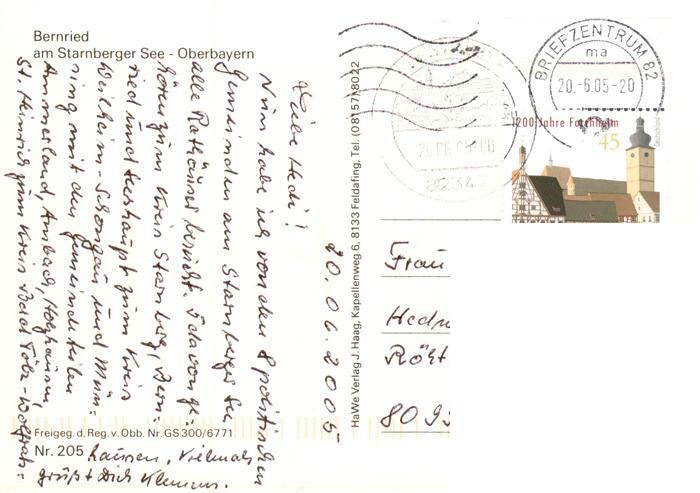 Bernried
am Starnberger See - Oberbayern
20.06.2005
Liebe Hedi!
Nun habe ich von den 8 politischen
Gemeinden am Starnberger See
alle Rathäuser besucht. 5 davon ge-
hören zum Kreis Starnberg, Bern-
ried und Seeshaupt zum Kreis
Weilheim-Schongau und Mün-
sing mit den Gemeindeteilen
Ammerland, Ambach, Holzhausen,
St. Heinrich zum Kreis Bad Tölz-Wolfrats-
hausen. Vielmals
grüßt Dich Klemens.
Freigeg. d. Reg. v. Obb. Nr. GS 300/6771
Nr. 205
HaWe Verlag J. Haag, Kapellenweg 6, 8133 Feldafing, Tel. (08157) 8022
BRIEFZENTRUM 82
ma
20.-6.05-20
20.06.05.00
82347
1200 Jahre Forchheim
45
Deutschland
Frau
Hedw
Röht
8095